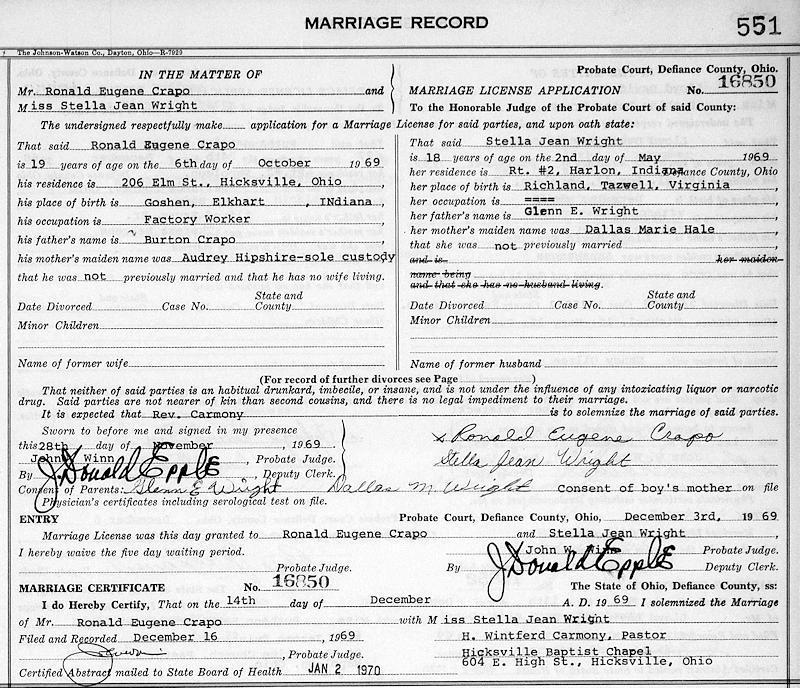 MARRIAGE RECORD
551
The Johnson-Watson Co., Dayton, Ohio—R-7929
IN THE MATTER OF
Mr. Ronald Eugene Crapo and
Miss Stella Jean Wright
Probate Court, Defiance County, Ohio.
MARRIAGE LICENSE APPLICATION No. 16850
To the Honorable Judge of the Probate Court of said County:
The undersigned respectfully make application for a Marriage License for said parties, and upon oath state:
That said Ronald Eugene Crapo
is 19 years of age on the 6th day of October 1969
his residence is 206 Elm St., Hicksville, Ohio,
his place of birth is Goshen, Elkhart , INdiana,
his occupation is Factory Worker
his father's name is Burton Crapo
his mother's maiden name was Audrey Hipshire-sole custody
that he was not previously married and that he has no wife living.
Date Divorced Case No. State and County
Minor Children
Name of former wife
That said Stella Jean Wright
is 18 years of age on the 2nd day of May 1969
her residence is Rt. #2, Harlon, Indiana County, Ohio
her place of birth is Richland, Tazwell, Virginia
her occupation is ====
her father's name is Glenn E. Wright
her mother's maiden name was Dallas Marie Hale
that she was not previously married
and is her maiden
name being
and that she has no husband living.
Date Divorced Case No. State and County
Minor Children
Name of former husband
(For record of further divorces see Page )
That neither of said parties is an habitual drunkard, imbecile, or insane, and is not under the influence of any intoxicating liquor or narcotic
drug. Said parties are not nearer of kin than second cousins, and there is no legal impediment to their marriage.
It is expected that Rev. Carmony is to solemnize the marriage of said parties.
Sworn to before me and signed in my presence
this 28th day of November, 1969
John Winn, Probate Judge.
By J. Donald Epple Deputy Clerk.
x Ronald Eugene Crapo
Stella Jean Wright
Consent of Parents: Glenn E Wright Dallas M. Wright Consent of boy's mother on file
Physician's certificates including serological test on file.
ENTRY Probate Court, Defiance County, Ohio, December 3rd, 1969
Marriage License was this day granted to Ronald Eugene Crapo and Stella Jean Wright,
I hereby waive the five day waiting period. John W. Probate Judge.
Probate Judge. By J Donald Epple Deputy Clerk.
MARRIAGE CERTIFICATE No. 16850 The State of Ohio, Defiance County, ss:
I do Hereby Certify, That on the 14th day of December A. D. 1969 I solemnized the Marriage
of Mr. Ronald Eugene Crapo with Miss Stella Jean Wright
Filed and Recorded December 16 1969 H. Wintferd Carmony, Pastor
, Probate Judge. Hicksville Baptist Chapel
Certified Abstract mailed to State Board of Health JAN 2 1970 604 E. High St., Hicksville, Ohio